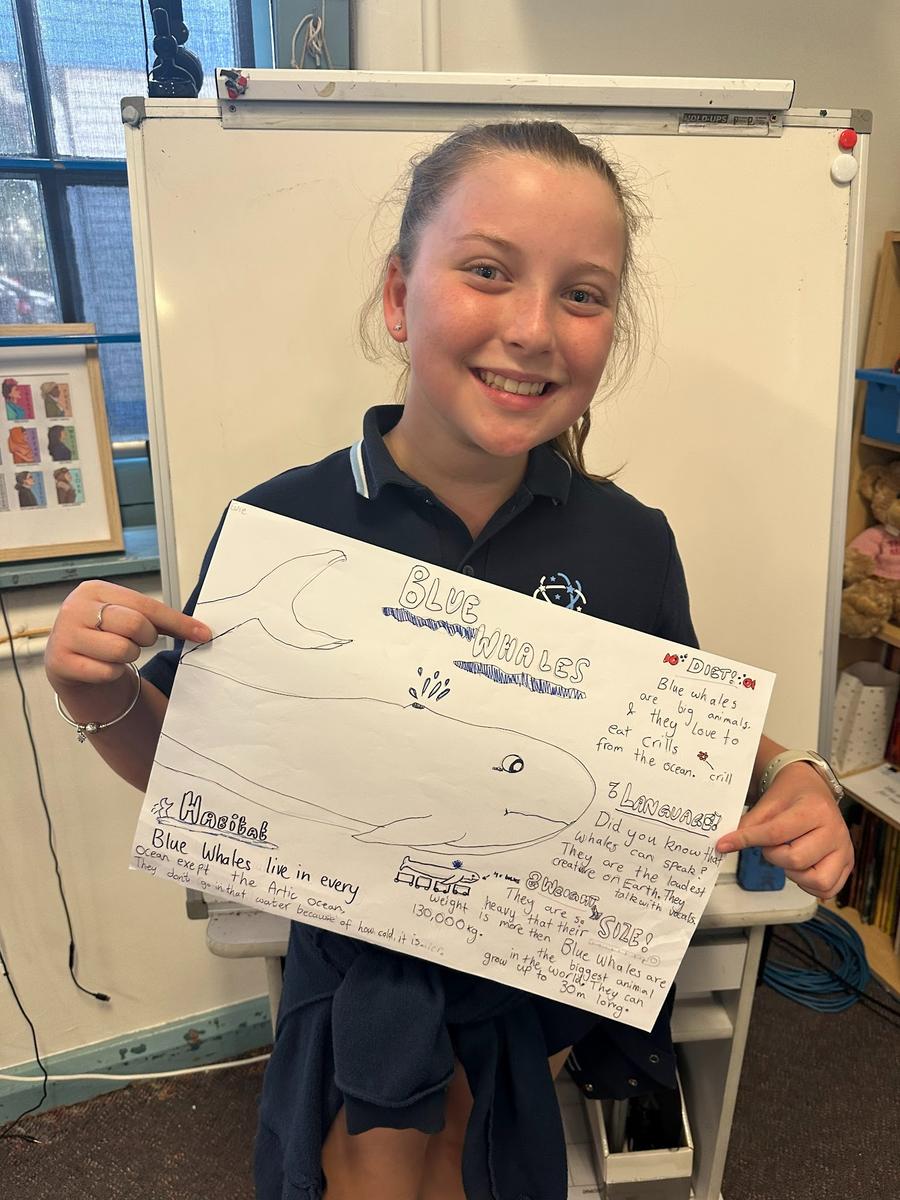 HOLD-UPS
BLUE
WHALES
DIET!
Blue whales
are big animals.
& they love to
eat crills
from the ocean.
crill
LANGUAGE!
Did you know that
whales can speak?
They are the loudest
creature on Earth. They
talk with vocals.
Habitat
Blue Whales live in every
ocean exept the Artic ocean,
They don't go in that water because of how cold, it is
WEIGHT
They are so
heavy that their
weight is more then
130,000kg.
SIZE!
Blue Whales are
the biggest animal
in the world. They can
grow up to 30m long.